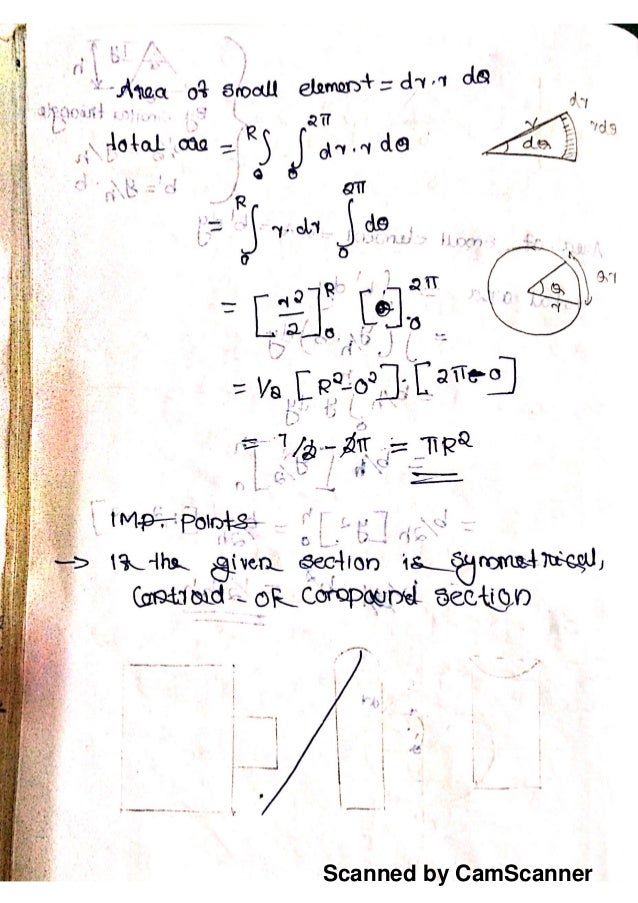 Area of small element = dr.r dθ
total are = ᴿ∫₀ ∫₀²ᴨ dr.r dθ
dr
r
rdθ
dθ
= ∫₀ᴿ r.dr ∫₀²ᴨ dθ
= [r²/2]₀ᴿ [θ]₀²ᴨ
θ
r
= 1/2 [R²-0²].[2π-0]
= 1/2 - 2π = πR²
IMP. Points
→ If the given section is symmetrical,
Centroid - OF Compound section
Scanned by CamScanner